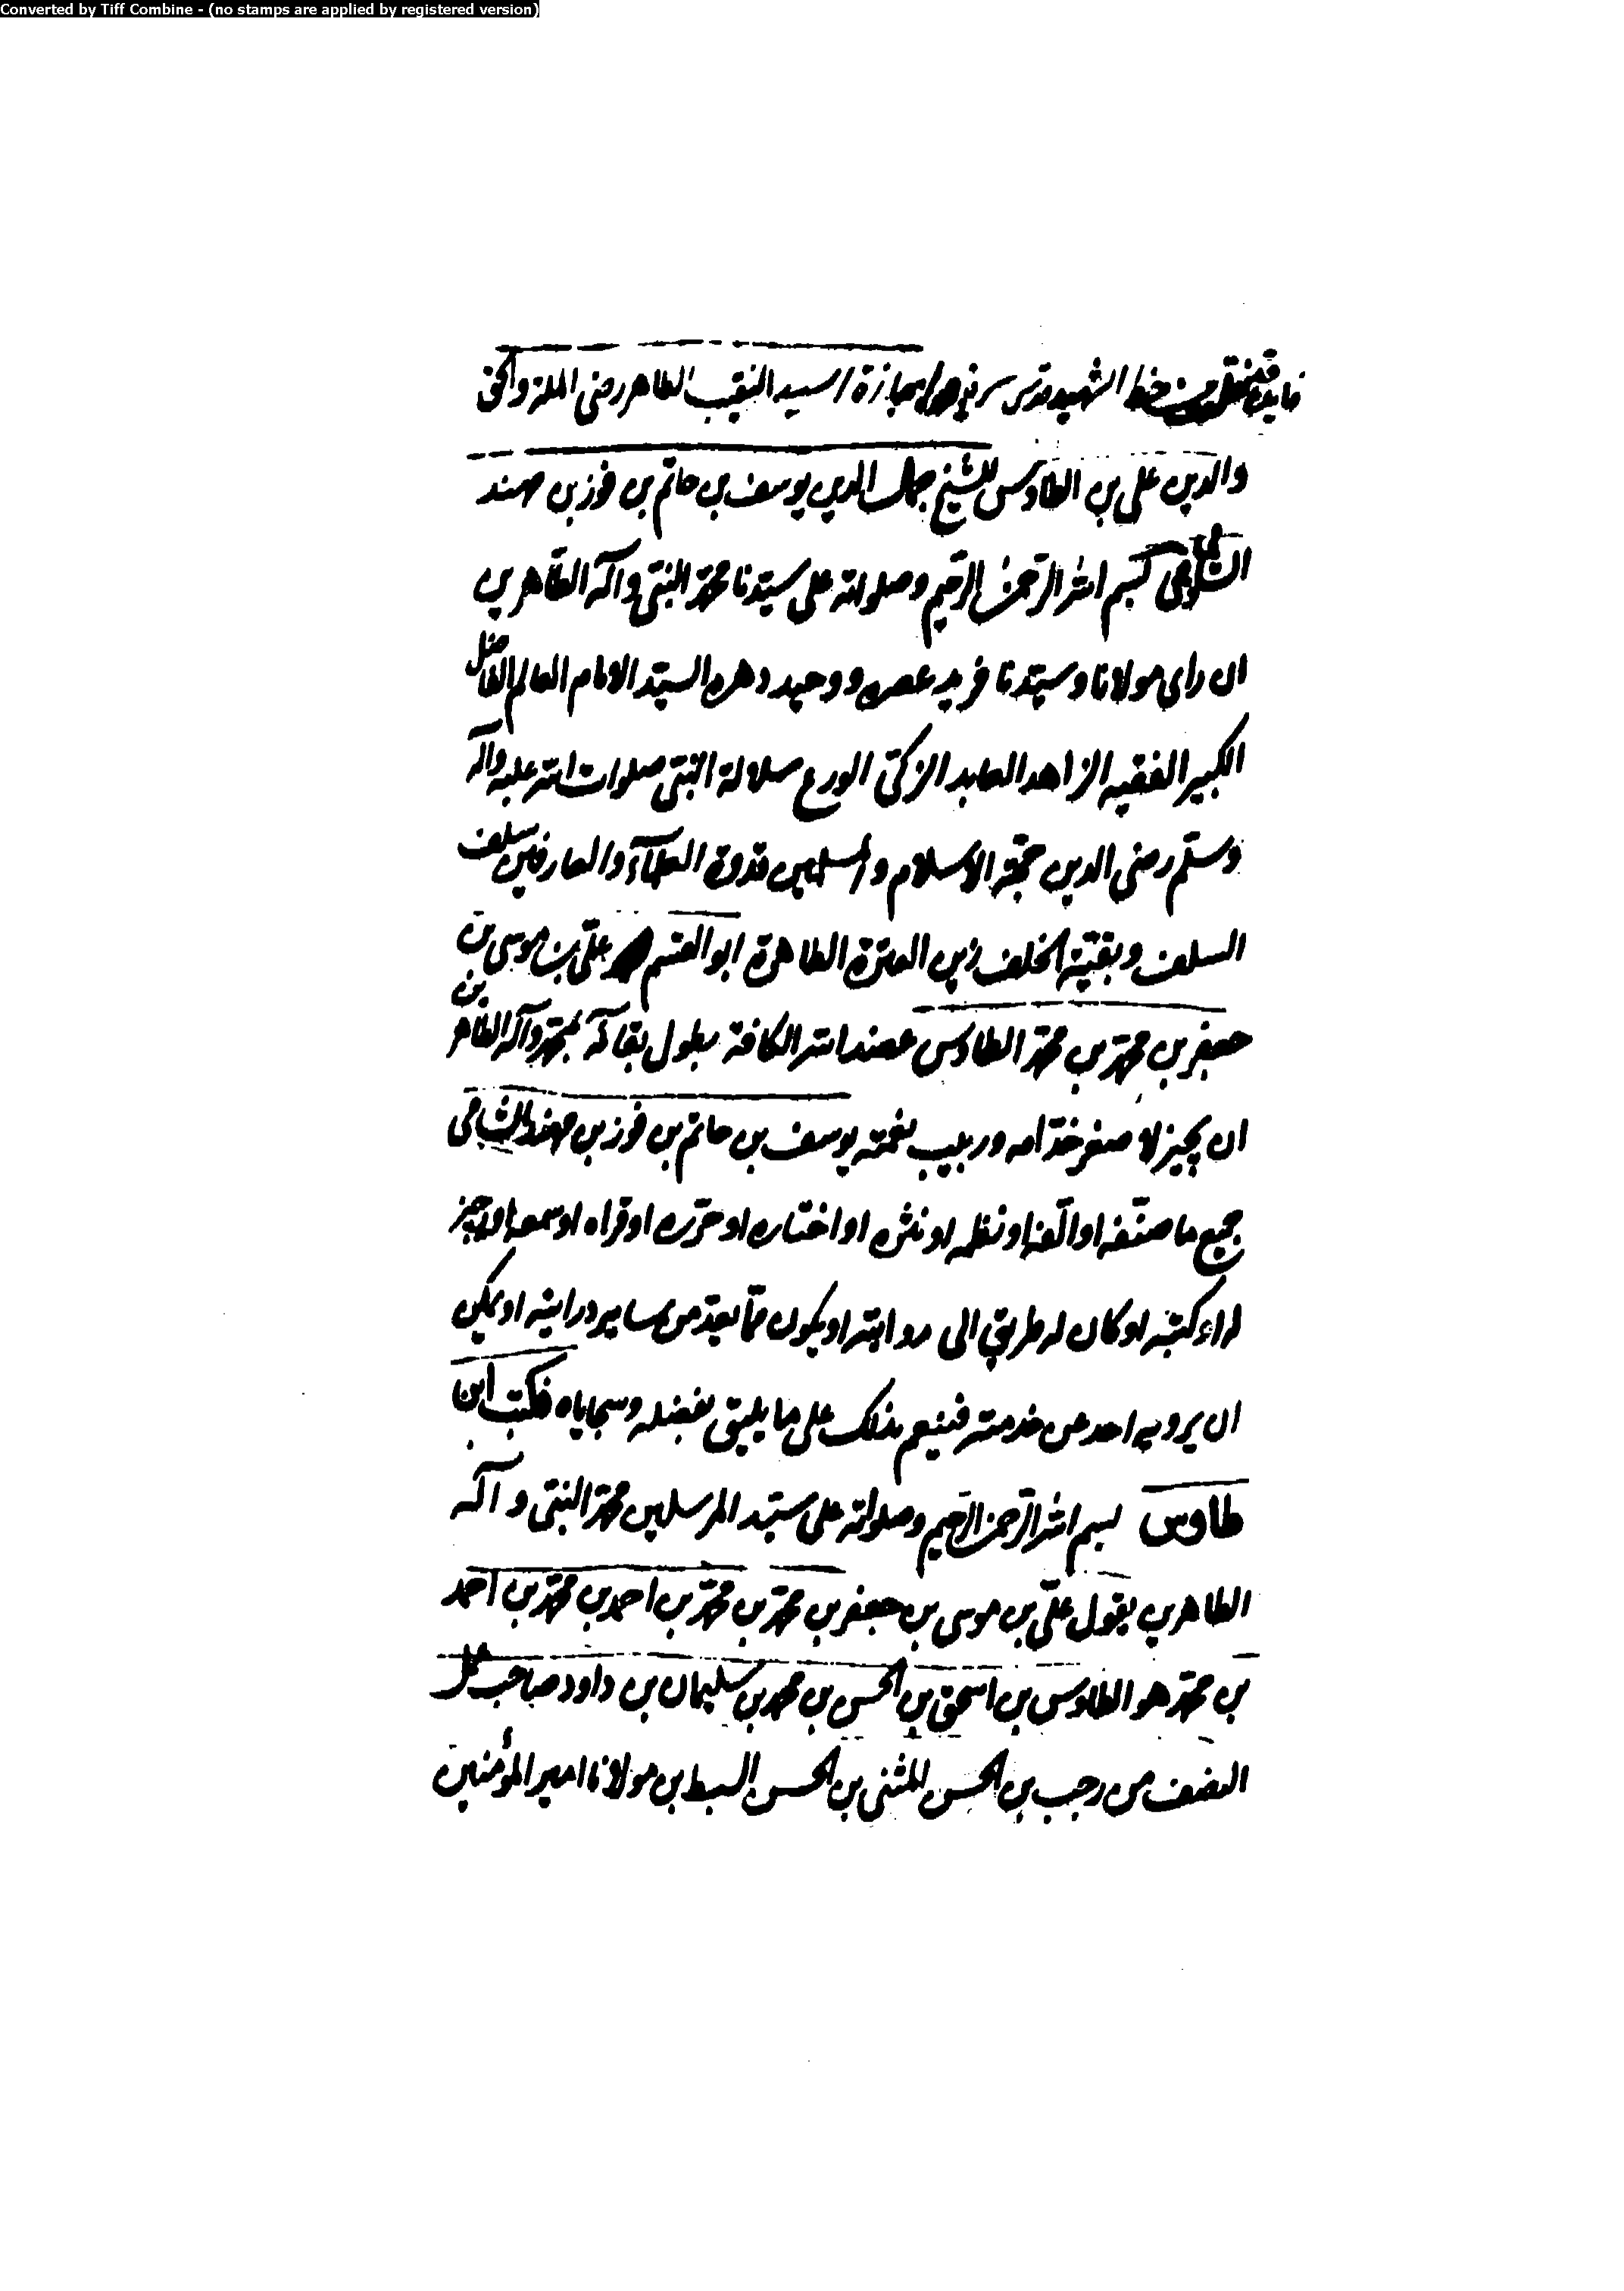 Converted by Tiff Combine - (no stamps are applied by registered version)
فايدة نقلت من خط الشهيد قدس سره اجازة السيد النقيب الطاهر رضى الملة والحق
والدين على بن الطاوس للشيخ جمال الدين يوسف بن حاتم بن فوز بن مهند
الشامى بسم الله الرحمن الرحيم وصلواته على سيدنا محمد النبى وآله الطاهرين
ان راى مولانا وسيدنا فريد عصره ووحيد دهره السيد الامام العالم الفاضل
الكبير الفقيه الزاهد العابد الزكى الورع سلالة النبى صلوات الله عليه وآله
وسلم رضى الدين حجة الاسلام والمسلمين قدوة العلمآء والعارفين سلف
السلف وبقية الخلف زين العترة الطاهرة ابو القسم على بن موسى بن
جعفر بن محمد بن محمد الطاوس عضد الله الكافة بطول بقائه بمحمد وآله الطاهرين
ان يجيز لاصغر خدامه وربيب نعمته يوسف بن حاتم بن فوز بن مهند الشامى
جميع ما صنفه او الفه او نظمه او نثره او اختاره او حرره او قراه او سمعه او اجيز
له او كتبه او كان له طريق الى روايته او يكون مما يعد من ساير درايته او يمكن
ان يرويه احد عن خدمته فينعم بذلك على ما يليق بفضله وسجاياه فكتب ابن
طاوس بسم الله الرحمن الرحيم وصلواته على سيد المرسلين محمد النبى وآله
الطاهرين يقول على بن موسى بن جعفر بن محمد بن محمد بن احمد بن محمد بن احمد
بن محمد هو الطاوس بن اسحق بن الحسن بن محمد بن سليمان بن داود صاحب عمل
النصف من رجب بن الحسن المثنى بن الحسن السبط بن مولانا امير المؤمنين